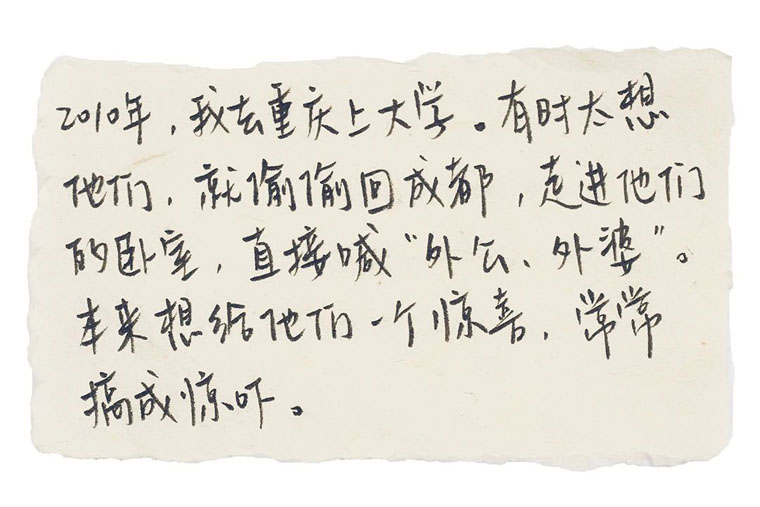 2010年，我去重庆上大学。有时太想
他们，就偷偷回成都，走进他们
的卧室，直接喊“外公、外婆”。
本来想给他们一个惊喜，常常
搞成惊吓。